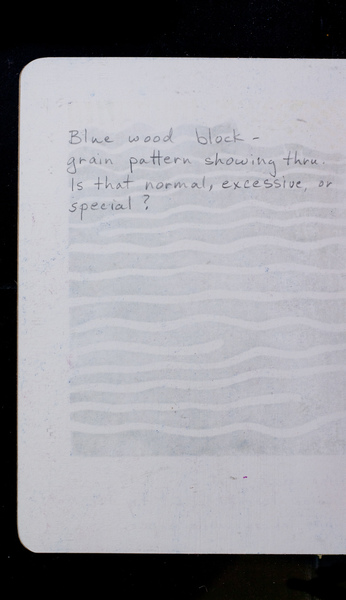 Blue wood block -
grain pattern showing thru.
Is that normal, excessive, or
special ?